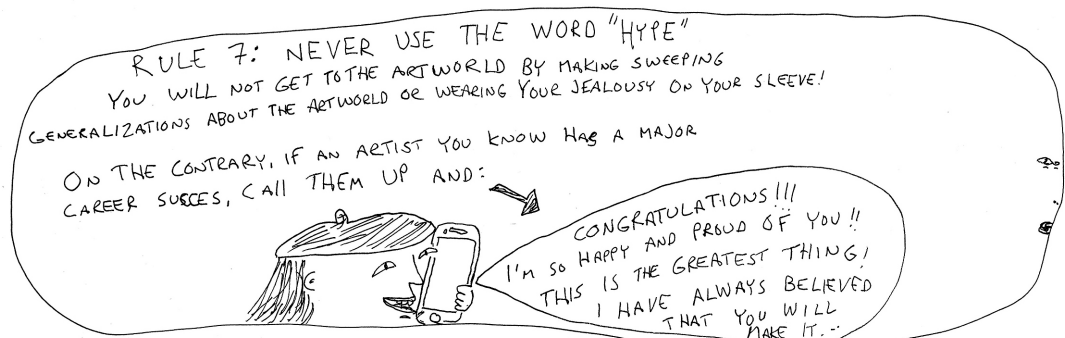 RULE 7: NEVER USE THE WORD "HYPE"
YOU WILL NOT GET TO THE ARTWORLD BY MAKING SWEEPING
GENERALIZATIONS ABOUT THE ARTWORLD OR WEARING YOUR JEALOUSY ON YOUR SLEEVE!
ON THE CONTRARY, IF AN ARTIST YOU KNOW HAS A MAJOR
CAREER SUCCES, CALL THEM UP AND:
CONGRATULATIONS!!!
I'M SO HAPPY AND PROUD OF YOU!!
THIS IS THE GREATEST THING!
I HAVE ALWAYS BELIEVED
THAT YOU WILL
MAKE IT...